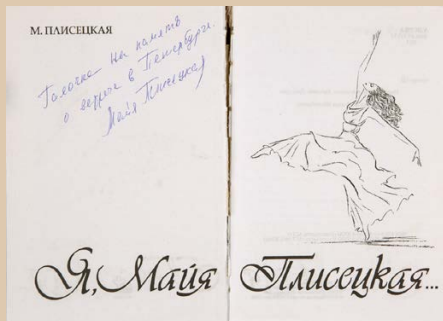 М. ПЛИСЕЦКАЯ
Галочке на память
о встрече в Петербурге.
Майя Плисецкая
Я, Майя Плисецкая...